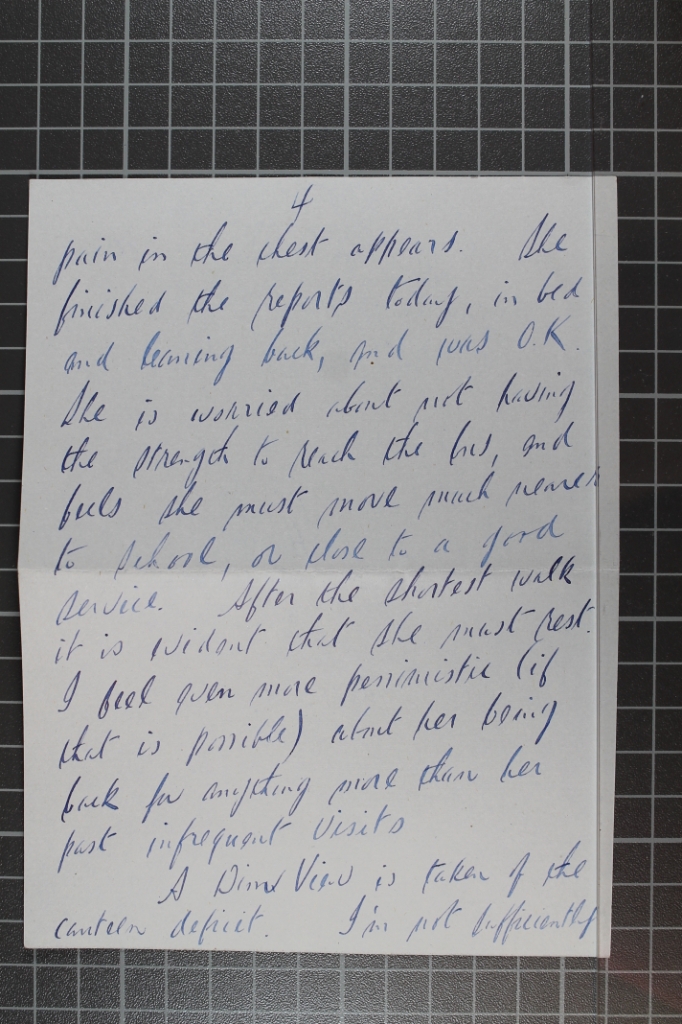 4
pain in the chest appears. She
finished the reports today, in bed
and leaning back, and was O.K.
She is worried about not having
the strength to reach the bus, and
feels she must move much nearer
to school, or close to a good
service. After the shortest walk
it is evident that she must rest.
I feel even more pessimistic (if
that is possible) about her being
back for anything more than her
past infrequent visits
A Dim View is taken of the
canteen deficit. I'm not sufficiently